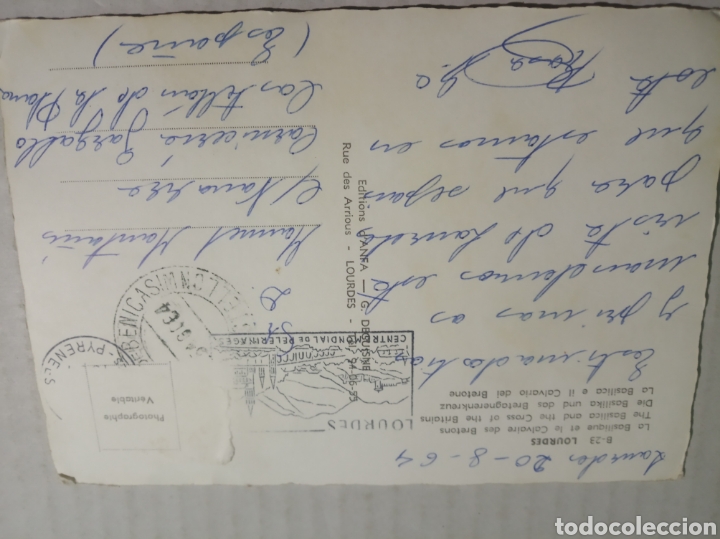 Lourdes 20-8-64
B-23 LOURDES
La Basilique et le Calvaire des Bretons
The Basilica and the Cross of the Britains
Die Basilika und das Bretognerenkreuz
La Basilica e il Calvario del Bretone
Estimados tios
y primos os
mandamos esta
vista de Lourdes
para que sepais
que estamos en
esta
Rosa
Editions - G. DEQUISNE
Rue des Arrious - LOURDES
LOURDES
CENTRE MONDIAL DE PELERINAGES
Photographie
Véritable
PYRENEES
BENICASIM
Sr D.
Manuel
C/ Navarra
Carniceria Gargallo
Castellón de la Plana
(España)
todocoleccion